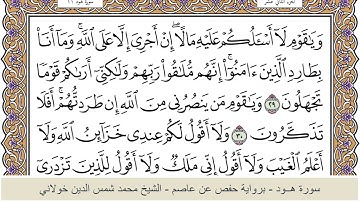 الجزء الثاني عشر
سورة هود ١١
وَيَٰقَوْمِ لَآ أَسْـَٔلُكُمْ عَلَيْهِ مَالًا ۖ إِنْ أَجْرِىَ إِلَّا عَلَى ٱللَّهِ ۚ وَمَآ أَنَا۠
بِطَارِدِ ٱلَّذِينَ ءَامَنُوٓا۟ ۚ إِنَّهُم مُّلَٰقُوا۟ رَبِّهِمْ وَلَٰكِنِّىٓ أَرَىٰكُمْ قَوْمًا
تَجْهَلُونَ ٢٩ وَيَٰقَوْمِ مَن يَنصُرُنِى مِنَ ٱللَّهِ إِن طَرَدتُّهُمْ ۚ أَفَلَا
تَذَكَّرُونَ ٣٠ وَلَآ أَقُولُ لَكُمْ عِندِى خَزَآئِنُ ٱللَّهِ وَلَآ
أَعْلَمُ ٱلْغَيْبَ وَلَآ أَقُولُ إِنِّى مَلَكٌ وَلَآ أَقُولُ لِلَّذِينَ تَزْدَرِىٓ
سورة هـود - برواية حفص عن عاصم - الشيخ محمد شمس الدين خولاني